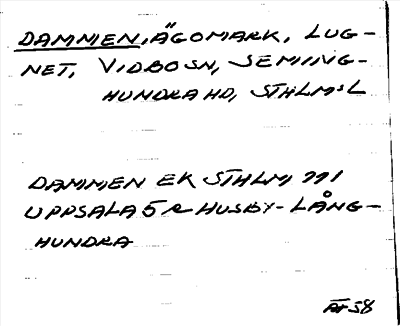 DAMMEN, ÄGOMARK, LUG-
NET, VIDBO SN, SEMING-
HUNDRA HD, STHLMS L
DAMMEN EK STHLM 111
UPPSALA 5 R HUSBY-LÅNG-
HUNDRA
ÄF 58